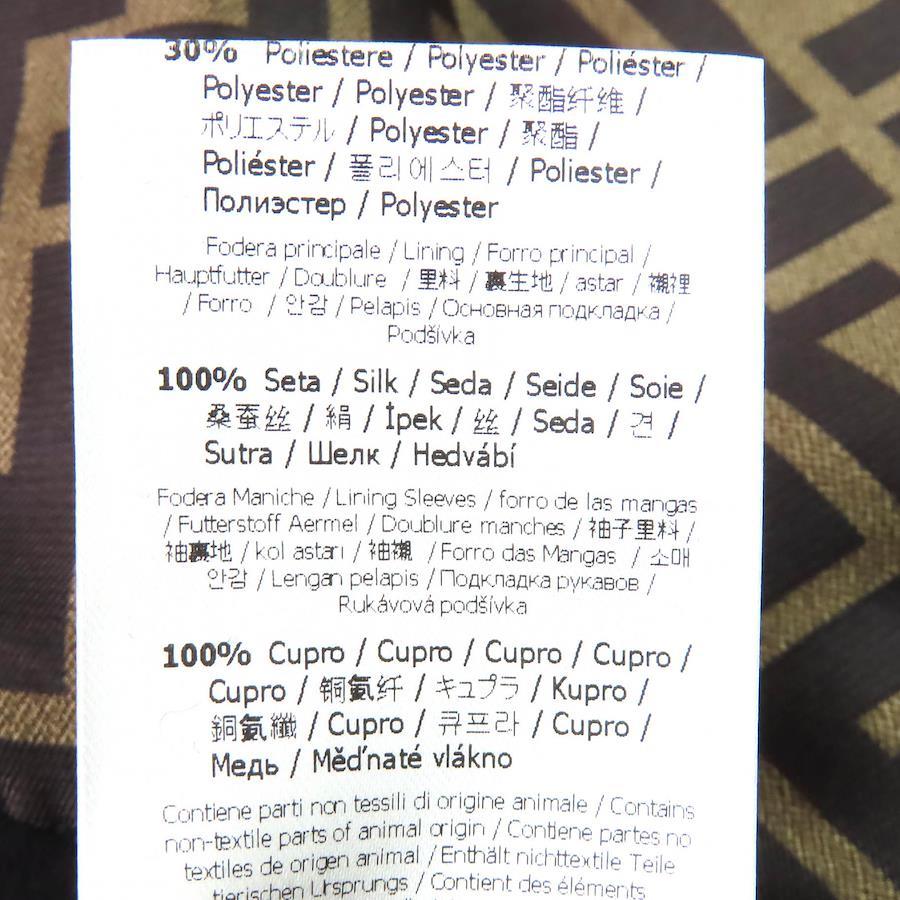 30% Poliestere / Polyester / Poliéster /
Polyester / Polyester / 聚酯纤维 /
ポリエステル / Polyester / 聚酯 /
Poliéster / 폴리에스터 / Poliester /
Полиэстер / Polyester
Fodera principale / Lining / Forro principal /
Hauptfutter / Doublure / 里料 / 裏生地 / astar / 襯裡
/ Forro / 안감 / Pelapis / Основная подкладка /
Podšívka
100% Seta / Silk / Seda / Seide / Soie /
桑蚕丝 / 絹 / İpek / 丝 / Seda / 견 /
Sutra / Шелк / Hedvábí
Fodera Maniche / Lining Sleeves / forro de las mangas
/ Futterstoff Aermel / Doublure manches / 袖子里料 /
袖裏地 / kol astarı / 袖襯 / Forro das Mangas / 소매
안감 / Lengan pelapis / Подкладка рукавов /
Rukávová podšívka
100% Cupro / Cupro / Cupro / Cupro /
Cupro / 铜氨纤 / キュプラ / Kupro /
銅氨纖 / Cupro / 큐프라 / Cupro /
Медь / Měďnaté vlákno
Contiene parti non tessili di origine animale / Contains
non-textile parts of animal origin / Contiene partes no
textiles de origen animal / Enthält nichttextile Teile
tierischen Ursprungs / Contient des éléments